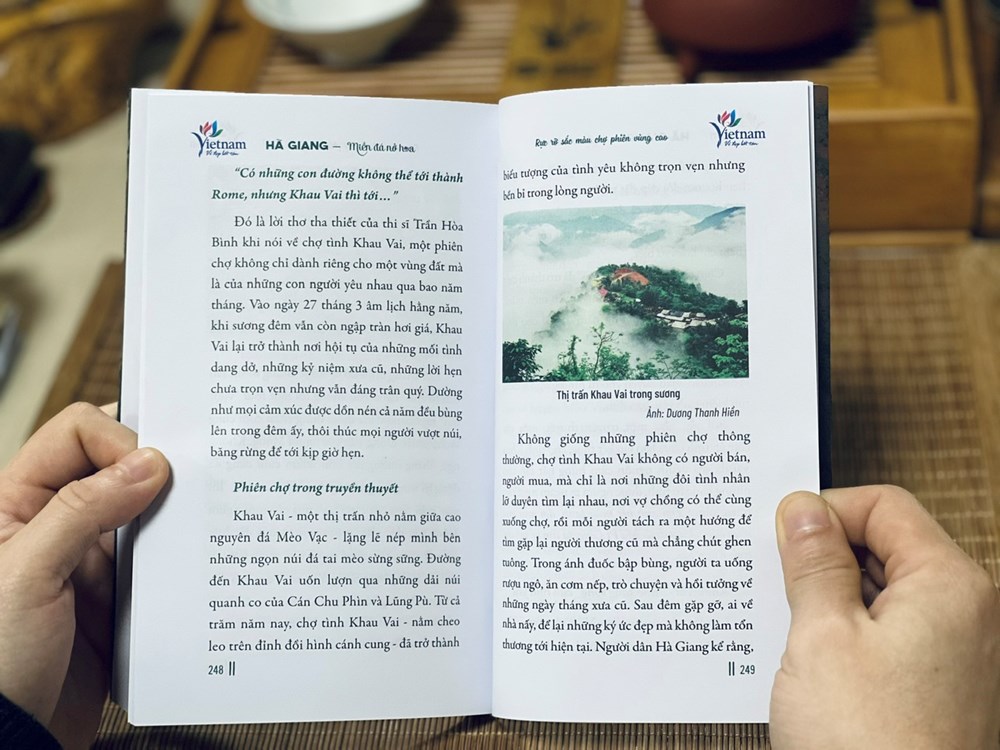 Vietnam
Vẻ đẹp bất tận
HÀ GIANG – Miền đá nở hoa
"Có những con đường không thể tới thành
Rome, nhưng Khau Vai thì tới…"
Đó là lời thơ tha thiết của thi sĩ Trần Hòa
Bình khi nói về chợ tình Khau Vai, một phiên
chợ không chỉ dành riêng cho một vùng đất mà
là của những con người yêu nhau qua bao năm
tháng. Vào ngày 27 tháng 3 âm lịch hằng năm,
khi sương đêm vẫn còn ngập tràn hơi giá, Khau
Vai lại trở thành nơi hội tụ của những mối tình
dang dở, những kỷ niệm xưa cũ, những lời hẹn
chưa trọn vẹn nhưng vẫn đáng trân quý. Dường
như mọi cảm xúc được dồn nén cả năm đều bùng
lên trong đêm ấy, thôi thúc mọi người vượt núi,
băng rừng để tới kịp giờ hẹn.
Phiên chợ trong truyền thuyết
Khau Vai - một thị trấn nhỏ nằm giữa cao
nguyên đá Mèo Vạc - lặng lẽ nép mình bên
những ngọn núi đá tai mèo sừng sững. Đường
đến Khau Vai uốn lượn qua những dải núi
quanh co của Cán Chu Phìn và Lũng Pù. Từ cả
trăm năm nay, chợ tình Khau Vai - nằm cheo
leo trên đỉnh đồi hình cánh cung - đã trở thành
248
Rực rỡ sắc màu chợ phiên vùng cao
Vietnam
Vẻ đẹp bất tận
biểu tượng của tình yêu không trọn vẹn nhưng
bền bỉ trong lòng người.
Thị trấn Khau Vai trong sương
Ảnh: Dương Thanh Hiền
Không giống những phiên chợ thông
thường, chợ tình Khau Vai không có người bán,
người mua, mà chỉ là nơi những đôi tình nhân
lỡ duyên tìm lại nhau, nơi vợ chồng có thể cùng
xuống chợ, rồi mỗi người tách ra một hướng để
tìm gặp lại người thương cũ mà chẳng chút ghen
tuông. Trong ánh đuốc bập bùng, người ta uống
rượu ngô, ăn cơm nếp, trò chuyện và hồi tưởng về
những ngày tháng xưa cũ. Sau đêm gặp gỡ, ai về
nhà nấy, để lại những ký ức đẹp mà không làm tổn
thương tới hiện tại. Người dân Hà Giang kể rằng,
249